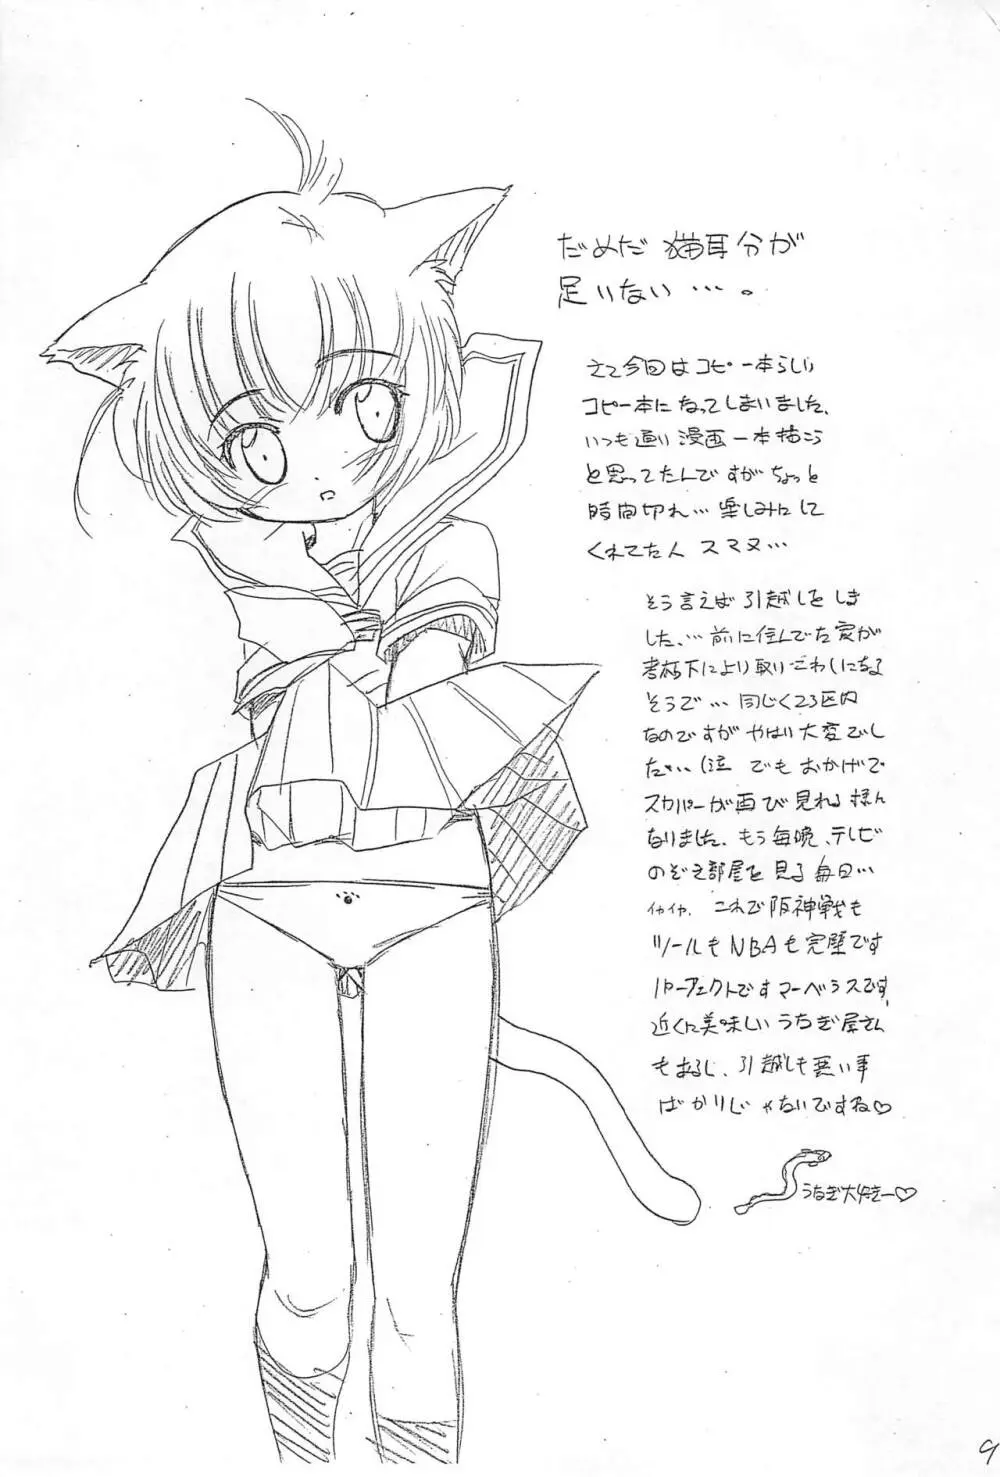 だめだ 猫耳分が
足りない…。
さて今回はコピー本らしい
コピー本になってしまいました、
いつも通り漫画一本描こう
と思ってたんですがちょっと
時間切れ… 楽しみにして
くれてた人 スマヌ…
そう言えば引越しをしま
した、…前に住んでた家が
老朽下により取りこわしになる
そうで…同じく23区内
なのですがやはり大変でし
た…(泣 でもおかげで
スカパーが再び見れる様ん
なりました、もう毎晩、テレビ
のぞき部屋を見る毎日…
イヤイヤ、これで阪神戦も
ツールもNBAも完璧です
パーフェクトですマーベラスです、
近くに美味しいうなぎ屋さん
もあるし、引越しも悪い事
ばかりじゃないですね♡
うなぎ大好きー♡
9